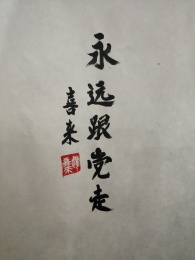 永远跟党走
喜来